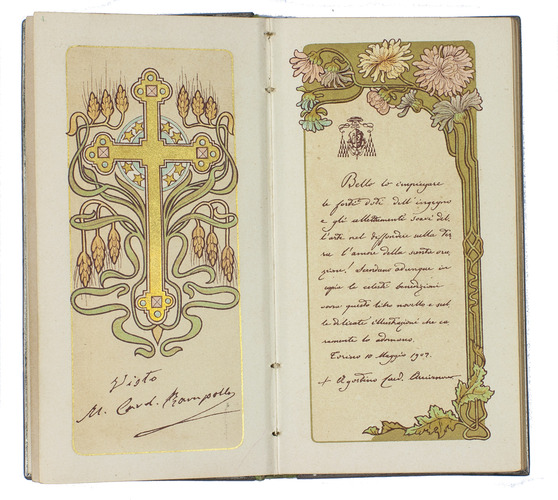 Visto
M. Card. Rampolla
Bello lo impiegare
le forti doti dell'ingegno
e gli allettamenti soavi del-
l'arte nel diffondere sulla Ter-
ra l'amore della santa ora-
zione! Scendano adunque in
copia le celesti benedizioni
sovra questo libro novello e sul-
le delicate illustrazioni che ca-
ramente lo adornano.
Torino 10 Maggio 1907.
+ Agostino Card.